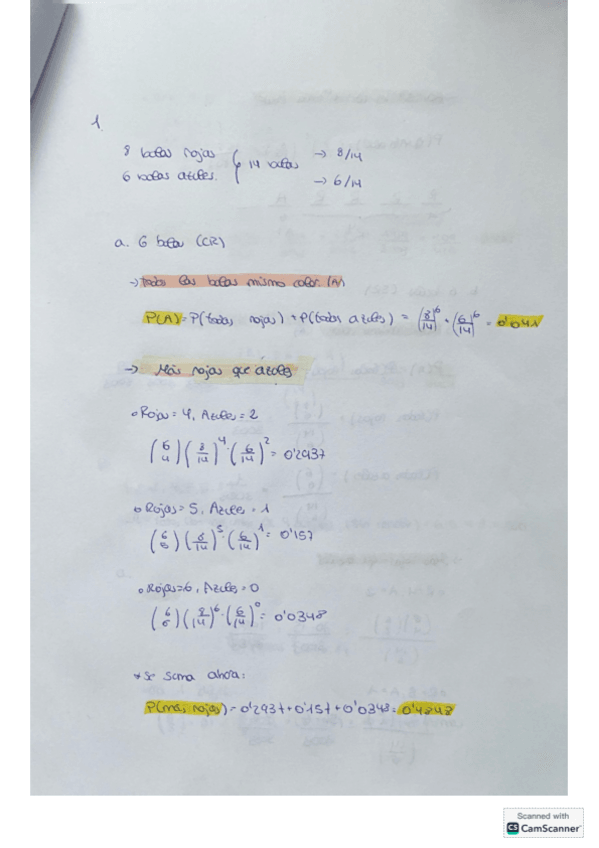 1.
8 bolas rojas
6 bolas azules. } 14 bolas → 8/14
→ 6/14
a. 6 bolas (CR)
→ todas las bolas mismo color. (A)
P(A) = P(todas rojas) + P(todas azules) = (8/14)^6 + (6/14)^6 = 0'041
→ Más rojas que azules
o Rojas = 4, Azules = 2
(6 4) (8/14)^4 · (6/14)^2 = 0'2937
o Rojas = 5, Azules = 1
(6 5) (8/14)^5 · (6/14)^1 = 0'157
o Rojas = 6, Azules = 0
(6 6) (8/14)^6 · (6/14)^0 = 0'0348
* Se suma ahora:
P(más rojas) = 0'2937 + 0'157 + 0'0348 = 0'4848
Scanned with
CS CamScanner